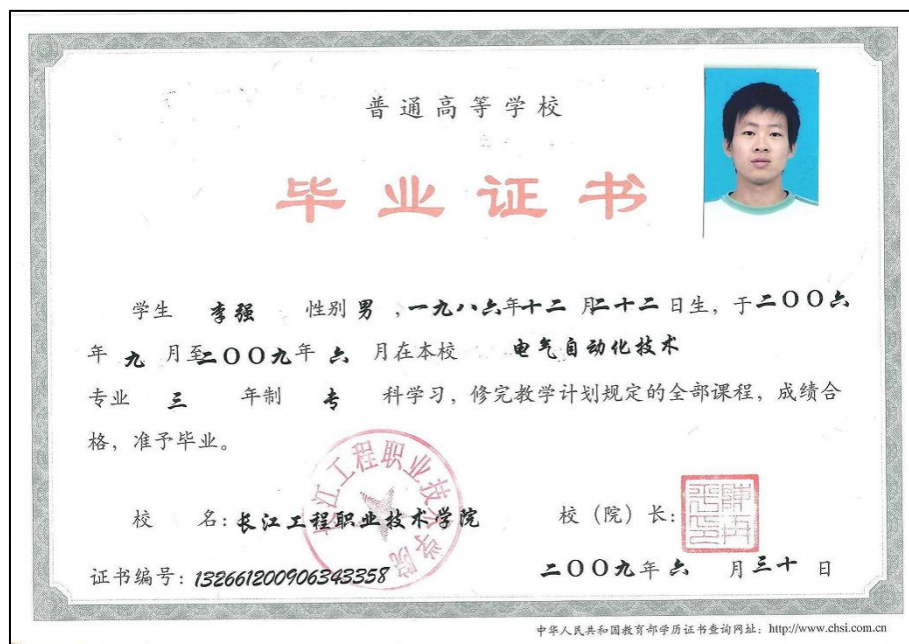 普通高等学校
毕业证书
学生 李强 性别 男 ，一九八六年十二 月二十二 日生，于二〇〇六
年 九 月至二〇〇九年 六 月在本校 电气自动化技术
专业 三 年制 专 科学习，修完教学计划规定的全部课程，成绩合
格，准予毕业。
长江工程职业技术学院
校 名：长江工程职业技术学院 校（院）长：
证书编号：132661200906343358 二〇〇九年 六 月三十 日
中华人民共和国教育部学历证书查询网址：http://www.chsi.com.cn